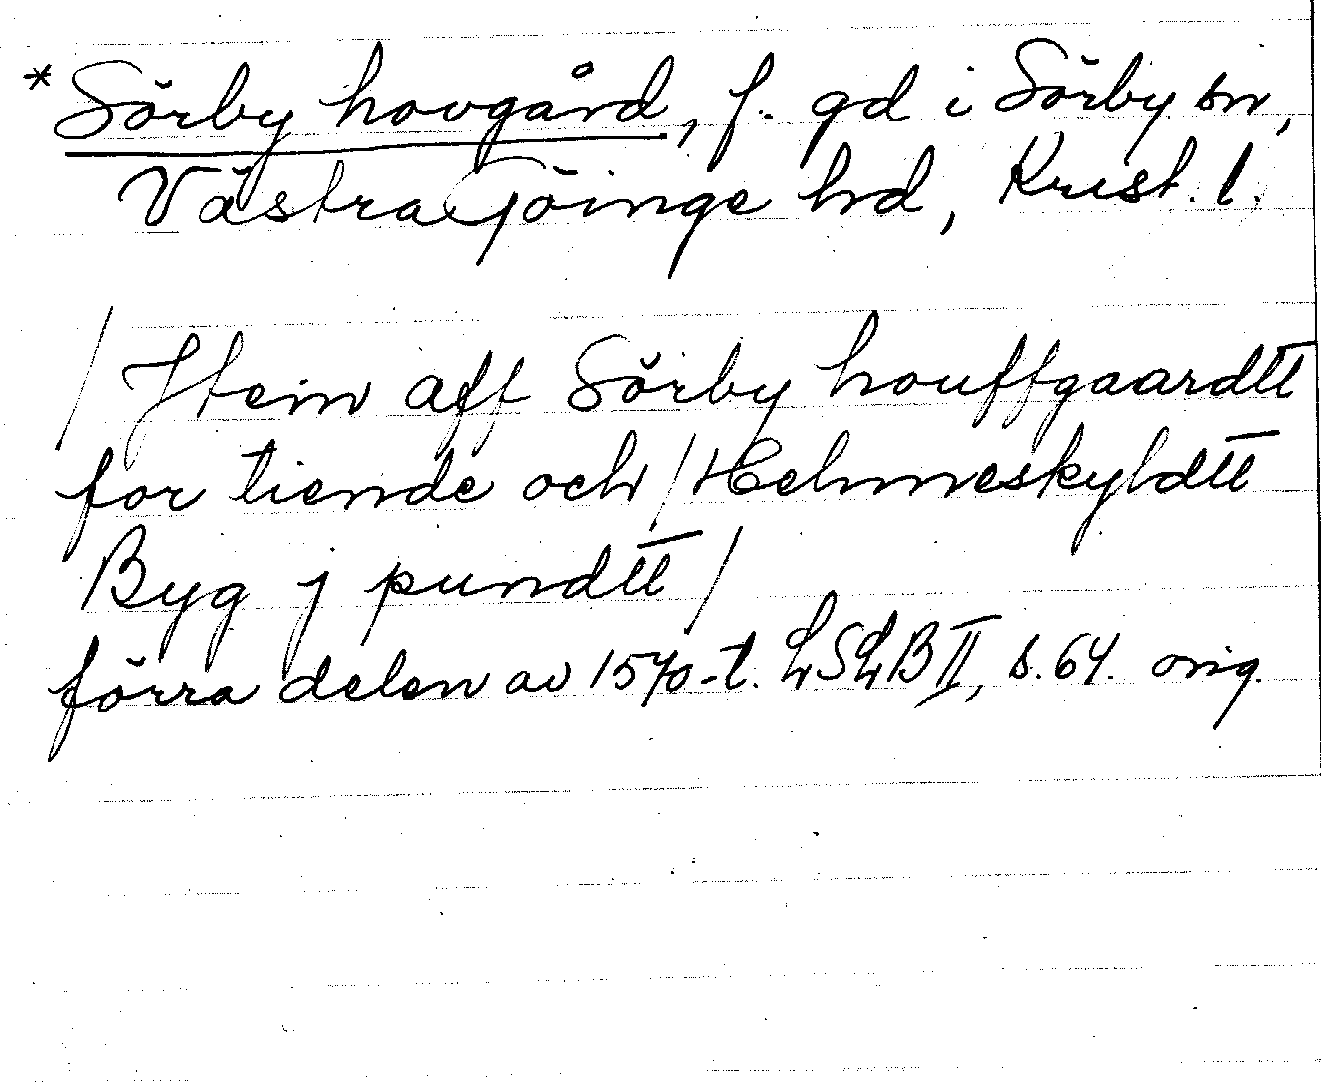 *Sörby hovgård, f. gd i Sörby sn,
Västra Göinge hd, Krist. l.
/Jtem aff Sörby houffgaardtt
for tiende och/Helmeskyldtt
Byg j pundtt/
förra delen av 1570-t. LSLB II, s. 64. orig.